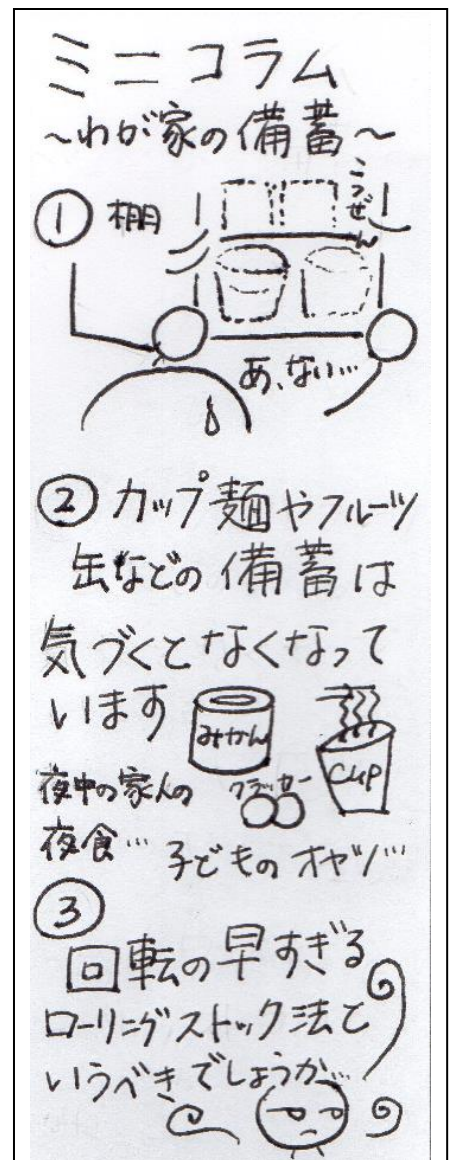 ミニコラム
～わが家の備蓄～
① 棚
こつぜん
あ、ない…
② カップ麺やフルーツ
缶などの備蓄は
気づくとなくなって
います
みかん
クラッカー
CUP
夜中の家人の
夜食…
子どものオヤツ…
③
回転の早すぎる
ローリングストック法と
いうべきでしょうか…